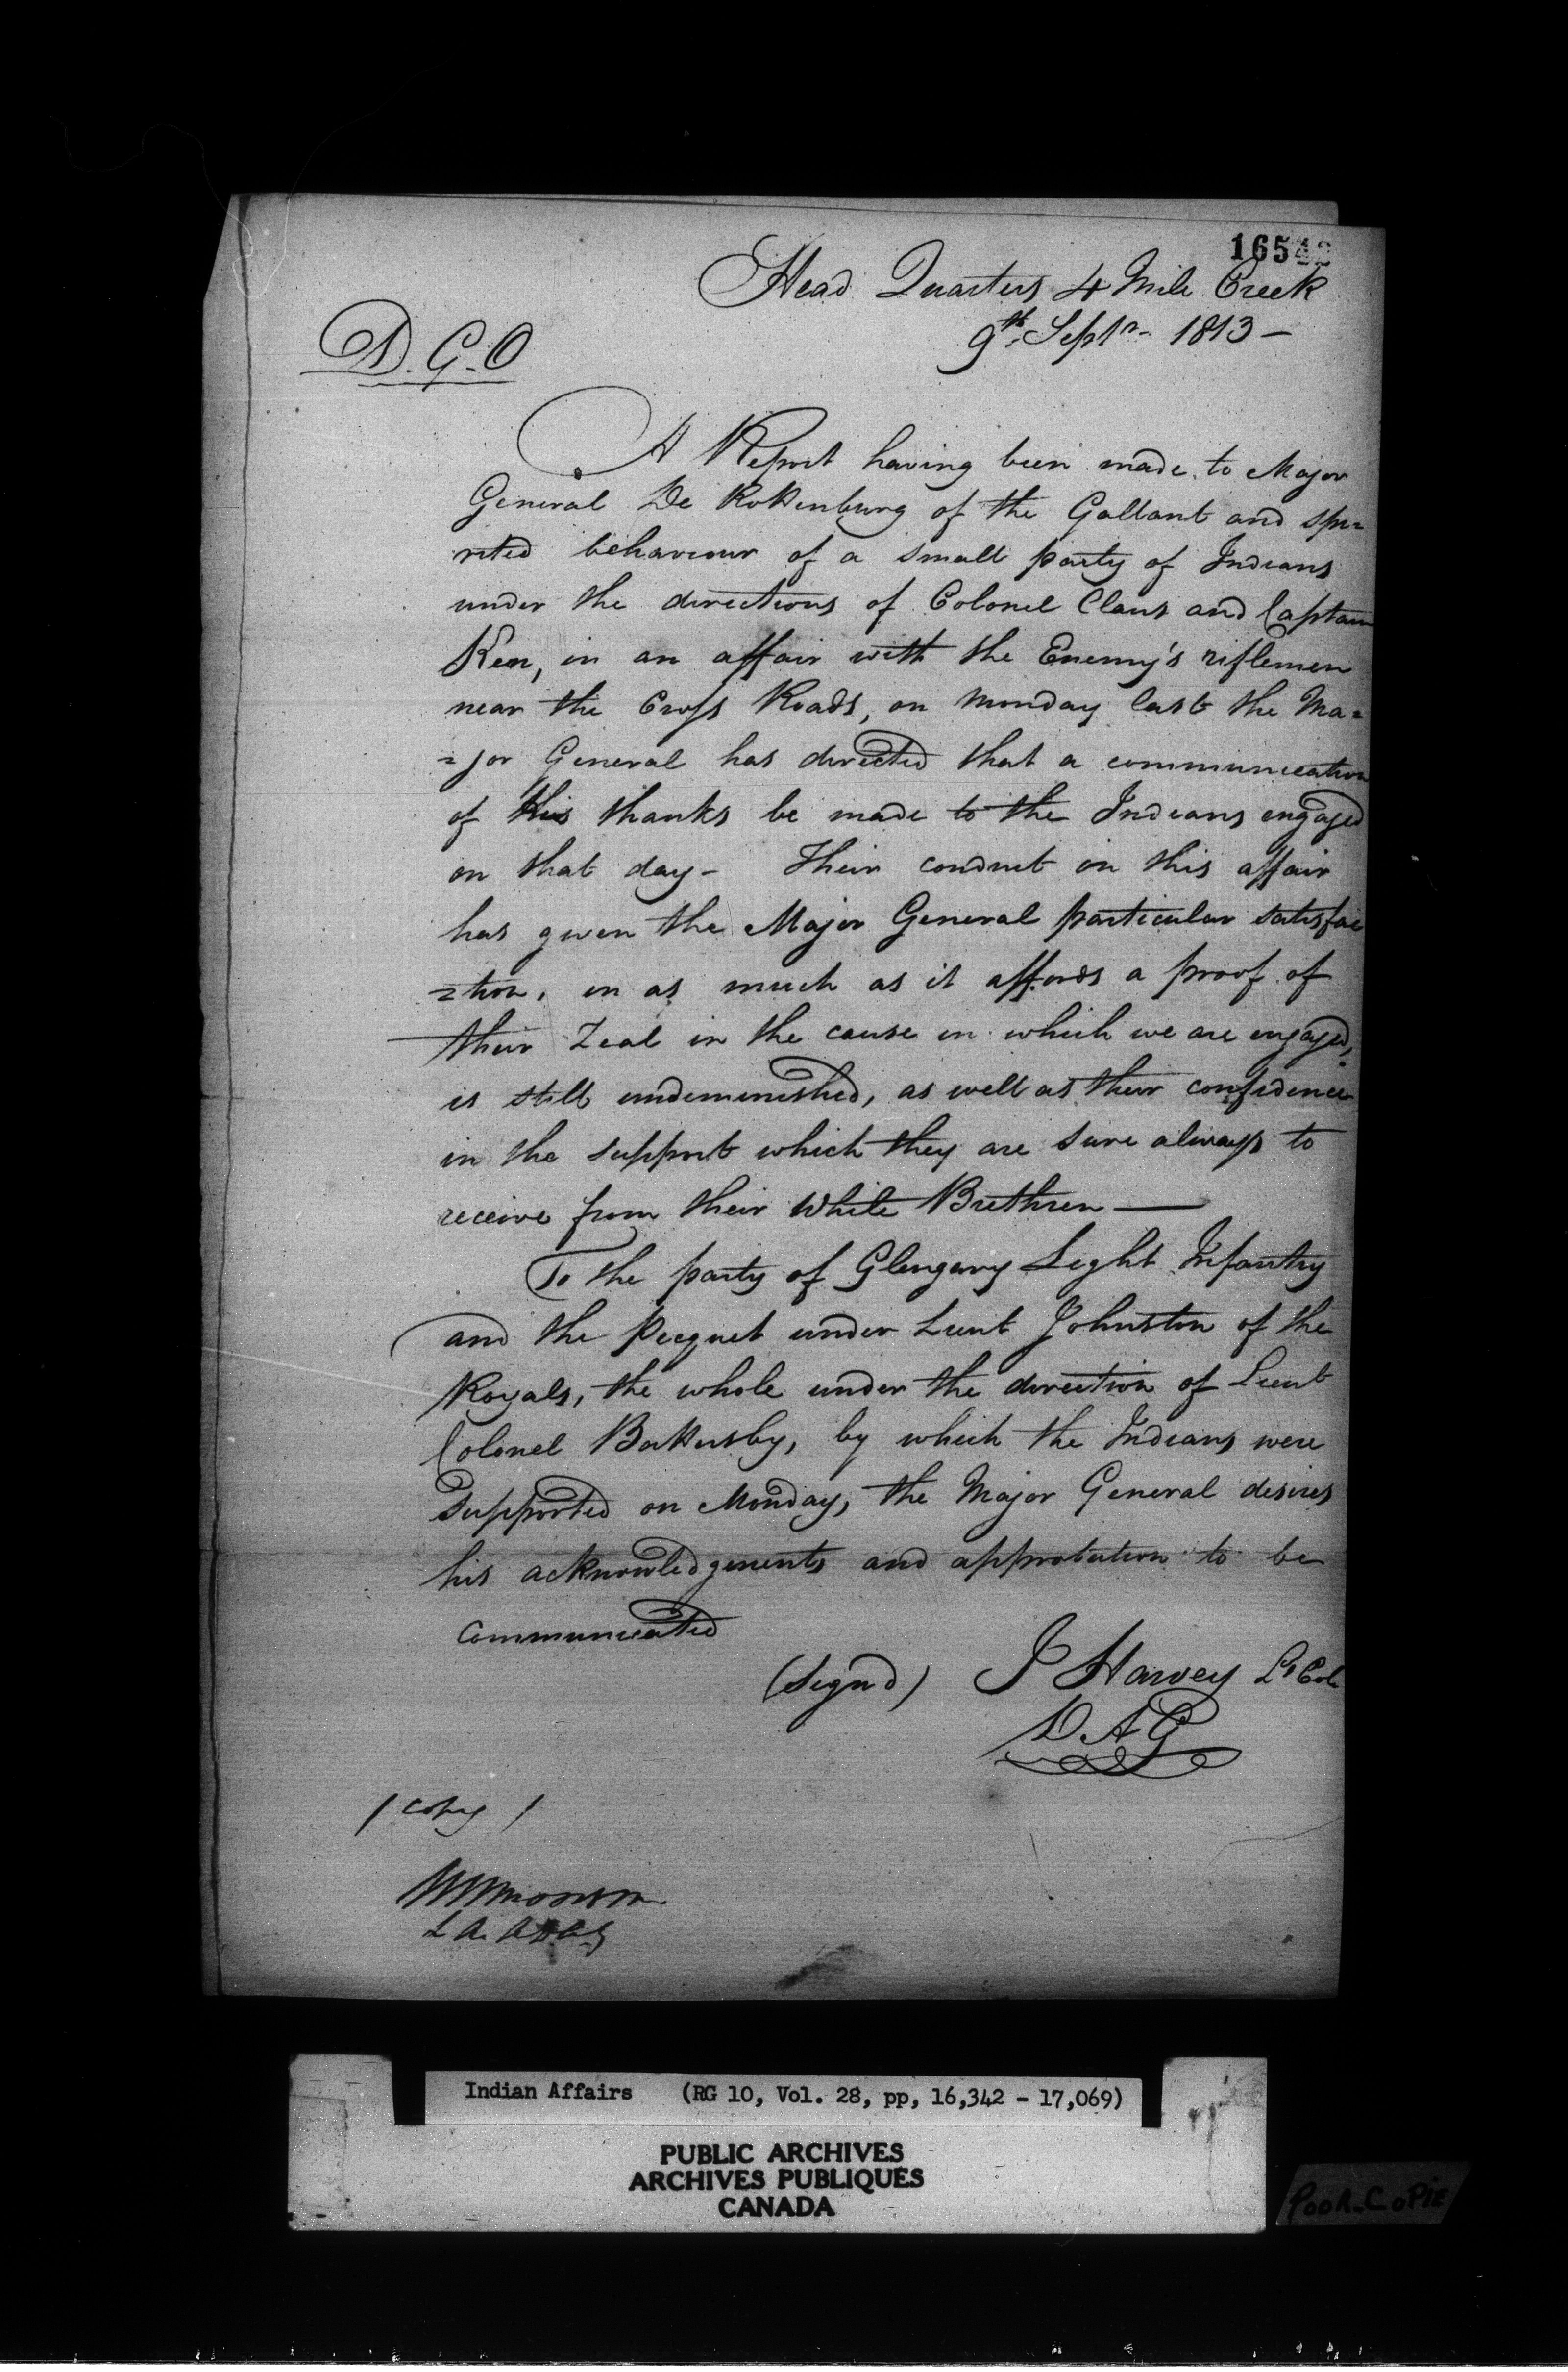 1654
Head Quarters 4 Mile Creek
9th Septr- 1813 -
D. G. O
A Report having been made to Major
General De Rottenburg of the Gallant and spi=
rited behaviour of a small party of Indians
under the directions of Colonel Claus and Captain
Kerr, in an affair with the Enemy's riflemen
near the Cross Roads, on Monday last the Ma=
=jor General has directed that a communication
of his thanks be made to the Indians engaged
on that day - Their conduct in this affair
has given the Major General particular satisfac
=tion, in as much as it affords a proof of
their Zeal in the cause in which we are engaged,
is still undeminished, as well as their confidence
in the support which they are sure always to
receive from their White Brethren —
To the party of Glengary Light Infantry
and the Picquet under Lieut Johnston of the
Royals, the whole under the direction of Lieut
Colonel Battersby, by which the Indians were
supported on Monday, the Major General desires
his acknowledgements and approbation to be
communicated
(Signd) J Harvey Lt Col
D A G
/ Copy /
Indian Affairs (RG 10, Vol. 28, pp, 16,342 - 17,069)
PUBLIC ARCHIVES
ARCHIVES PUBLIQUES
CANADA
Poor-Copie